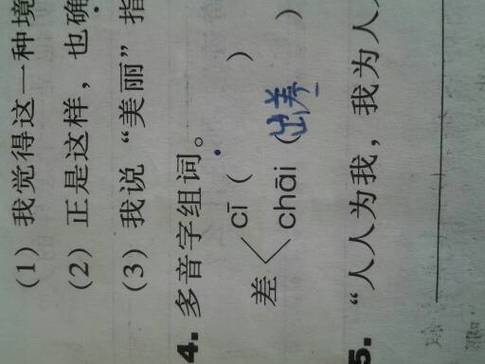 (1) 我觉得这一种境
(2) 正是这样，也确
(3) 我说“美丽”指
4. 多音字组词。
差 cī ( )
chāi (出差)
5. “人人为我，我为人人